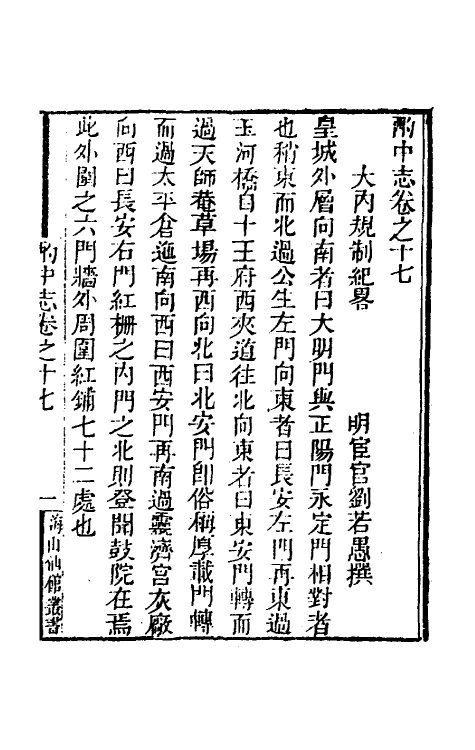 酌中志卷之十七
大內規制紀畧
明宦官劉若愚撰
皇城外層向南者曰大明門與正陽門永定門相對者
也稍東而北過公生左門向東者曰長安左門再東過
玉河橋自十王府西夾道往北向東者曰東安門轉而
過天師菴草場再西向北曰北安門即俗稱厚載門轉
而過太平倉迤南向西曰西安門再南過靈濟宮灰廠
向西曰長安右門紅柵之內門之北則登聞鼓院在焉
此外圍之六門牆外周圍紅鋪七十二處也
酌中志卷之十七
一
海山仙館叢書